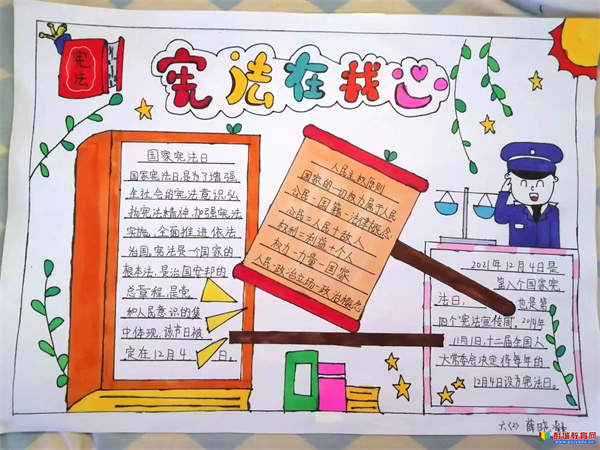 宪法
宪法在我心
国家宪法日
国家宪法日是为了增强
全社会的宪法意识弘
扬宪法精神,加强宪法
实施,全面推进依法
治国,宪法是一个国家的
根本法,是治国安邦的
总章程,是党
和人民意识的集
中体现,该节日被
定在12月4日。
人民主权原则
国家的一切权力属于人民
公民-国籍-法律概念
公民=人民+敌人
权利=利益+个人
权力-力量-国家
人民-政治立场-政治概念
2021年12月4日是
第八个国家宪
法日,也是第
四个宪法宣传周,2014年
11月1日,十二届全国人
大常委会决定将每年的
12月4日设为宪法日。
六(2) 薛晓